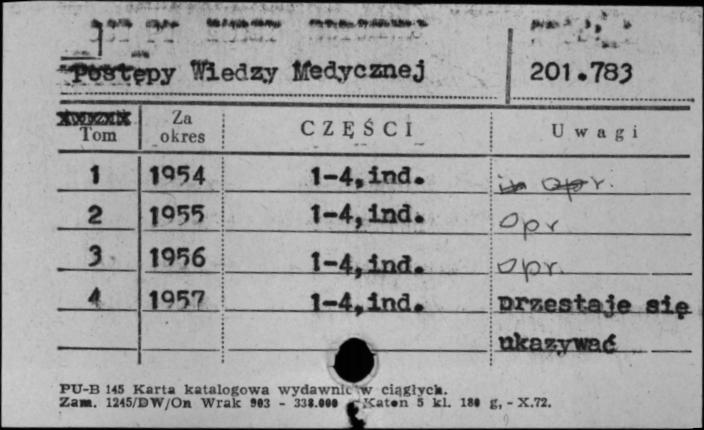 Postępy Wiedzy Medycznej 201.783
Tom Za okres CZĘŚCI Uwagi
1 1954 1-4,ind. opr.
2 1955 1-4,ind. opr
3 1956 1-4,ind. opr.
4 1957 1-4,ind. przestaje się
ukazywać
PU-B 145 Karta katalogowa wydawnic w ciągłych.
Zam. 1245/DW/On Wrak 903 - 338.000 Karton 5 kl. 180 g, - X.72.